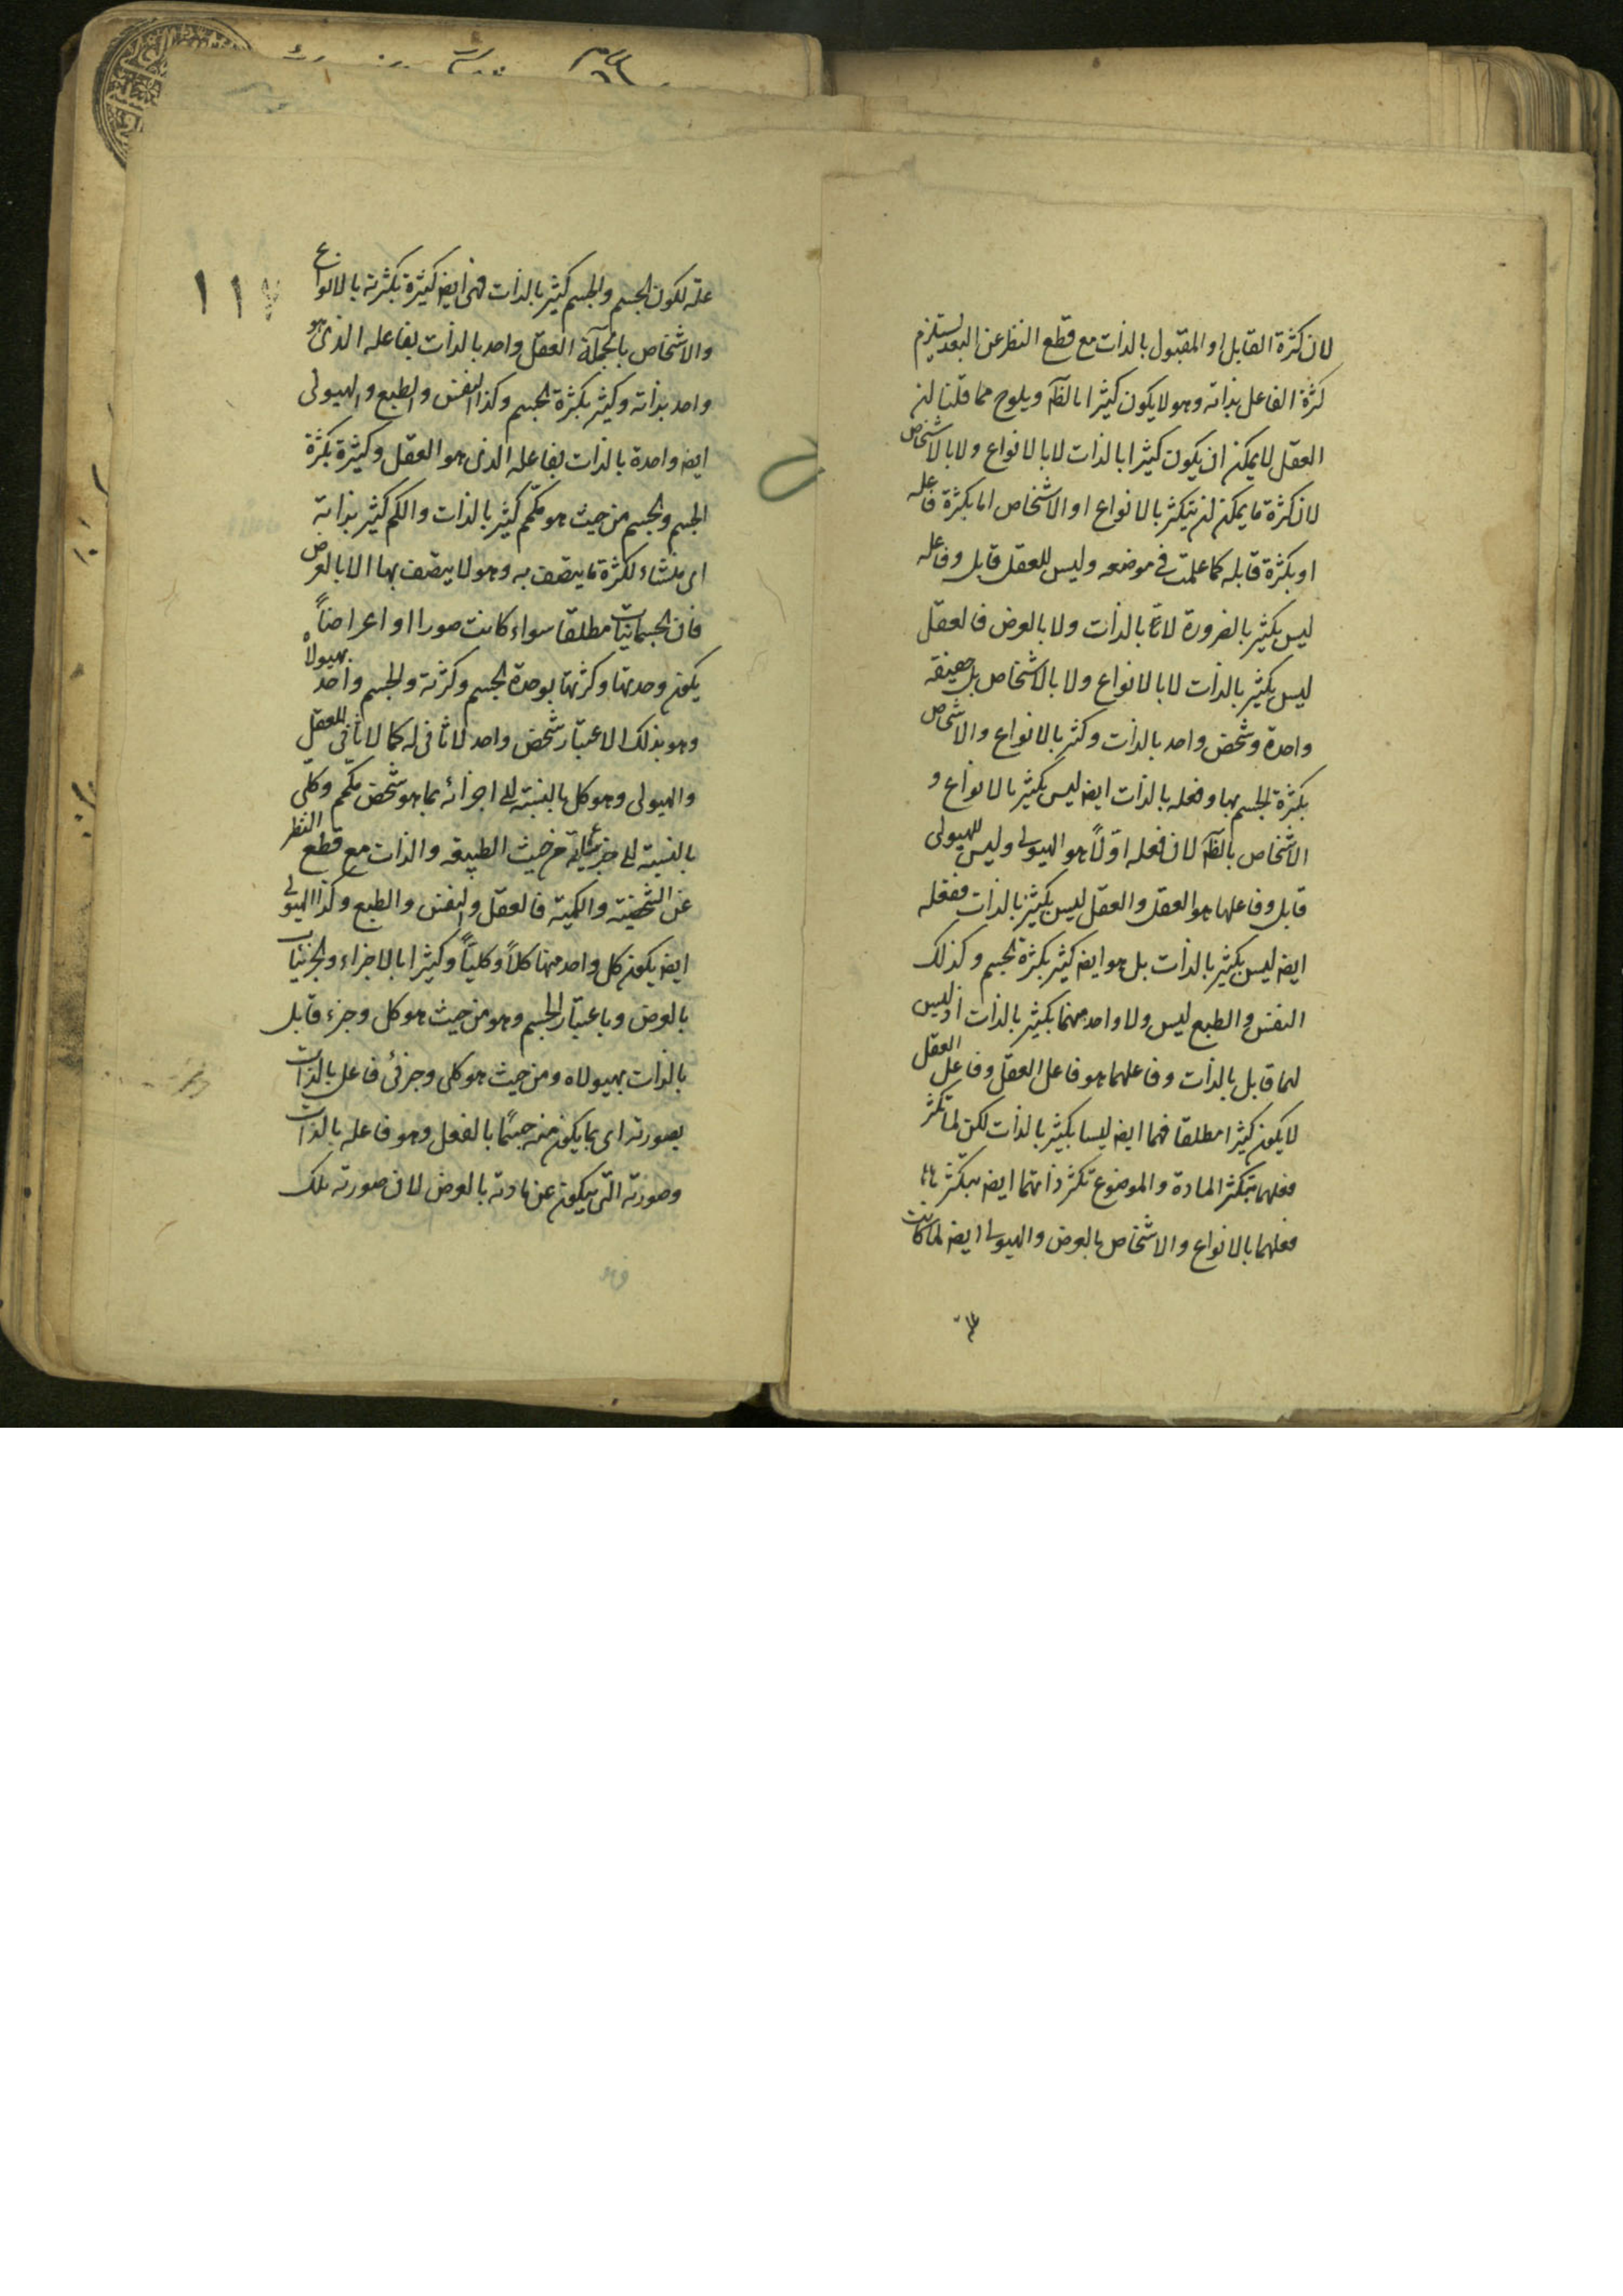 لان كثرة القابل او المقبول بالذات مع قطع النظر عن البعد يستلزم
كثرة الفاعل بذاته وهو لا يكون كثيرا بالظه ويلوح مما قلنا لن
العقل لا يمكن ان يكون كثيرا بالذات لا بالانواع ولا بالاشخاص
لان كثرة ما يمكن لن يتكثر بالانواع او الاشخاص اما بكثرة فاعله
او بكثرة قابله كما علمت في موضعه وليس للعقل قابل وفاعله
ليس بكثير بالضرورة لا بالذات ولا بالعرض فالعقل
ليس بكثير بالذات لا بالانواع ولا بالاشخاص بل حقيقه
واحدة وشخص واحد بالذات وكثر بالانواع والاشخاص
بكثرة الجسم بها وفعله بالذات ايضا ليس بكثير بالانواع و
الاشخاص بالظه لان فعله اولاً هو الهيولى وليس للهيولى
قابل وفاعلها هو العقل والعقل ليس بكثير بالذات ففعله
ايضا ليس بكثير بالذات بل هو ايضا كثير بكثرة الجسم وكذلك
النفس والطبع ليس ولا واحد منهما بكثير بالذات اذ ليس
لهما قابل بالذات وفاعلهما هو فاعل العقل وفاعل العقل
لا يكون كثيرا مطلقا فهما ايضا ليسا بكثير بالذات لكن لما تكثر
فعلهما بتكثر المادة والموضوع تكثر ذاتهما ايضا بتكثر
فعلهما بالانواع والاشخاص بالعرض والهيولى ايضا لما كانت
علة
١١٧
علة لكون الجسم والجسم كثير بالذات فهى ايضا كثيرة بكثرته بالانواع
والاشخاص بالجملة العقل واحد بالذات بفاعله الذى هو
واحد بذاته وكثير بكثرة الجسم وكذا النفس والطبع والهيولى
ايضا واحدة بالذات بفاعله الذى هو العقل وكثيرة بكثرة
الجسم والجسم من حيث هو متكمم كثير بالذات والكم كثير بذاته
اى منشاء لكثرة ما يتصف به وهو لا يتصف بها الا بالعرض
فان الجسمانيات مطلقا سواء كانت صورا او اعراضاً
يكون وحدتها وكثرتها بوحدة الجسم وكثرته والجسم واحد بهيولاه
وهو بذلك الاعتبار شخص واحد لا ثانى له كما لا ثانى للعقل
والهيولى وهو كل بالنسبة الى اجزائه بما هو شخص متكمم وكلى
بالنسبة الى جزئياته من حيث الطبيعة والذات مع قطع النظر
عن الشخصية والكمية فالعقل والنفس والطبع وكذا الهيولى
ايضا يكون كل واحد منها كلاً وكلياً وكثيرا بالاجزاء والجزئيات
بالعرض وباعتبار الجسم وهو من حيث هو كل وجزء قابل
بالذات بهيولاه ومن حيث هو كلى وجزئى فاعل بالذات
بصورته اى بما يكون منه جسمًا بالفعل وهو فاعله بالذات
وصورته التى يتكون عن مادته بالعرض لان صورته تلك